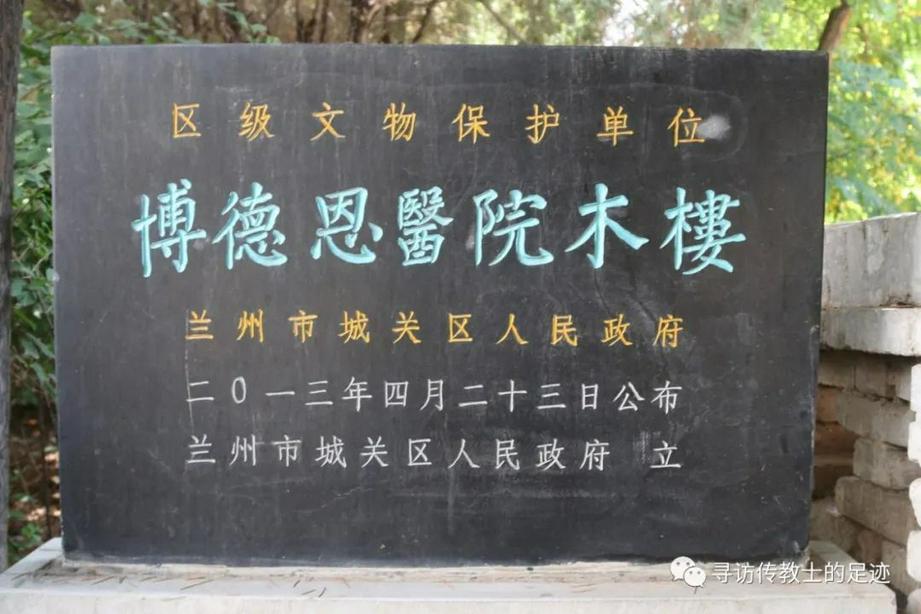 区级文物保护单位
博德恩醫院木樓
兰州市城关区人民政府
二0一三年四月二十三日公布
兰州市城关区人民政府 立
寻访传教士的足迹